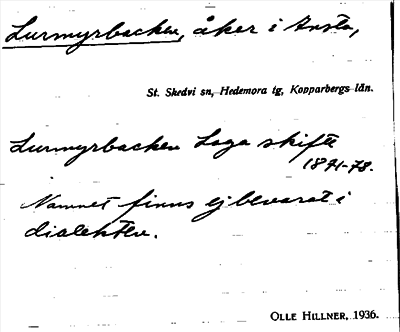 Lurmyrbacken, åker i Ansta,
St. Skedvi sn, Hedemora tg, Kopparbergs län.
Lurmyrbacken Laga skifte
1871-78.
Namnet finns ej bevarat i
dialekten.
OLLE HILLNER, 1936.